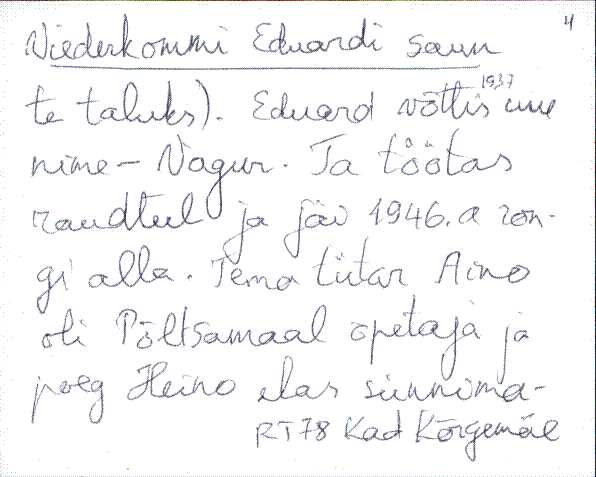 4
Niederkommi Eduardi saun
te taluks). Eduard võttis 1937 uue
nime - Nagur. Ta töötas
raudteel ja jäi 1946. a ron-
gi alla. Tema tütar Aino
oli Põltsamaal õpetaja ja
poeg Heino elas sünnima-
RT78 Kad Kõrgemäe